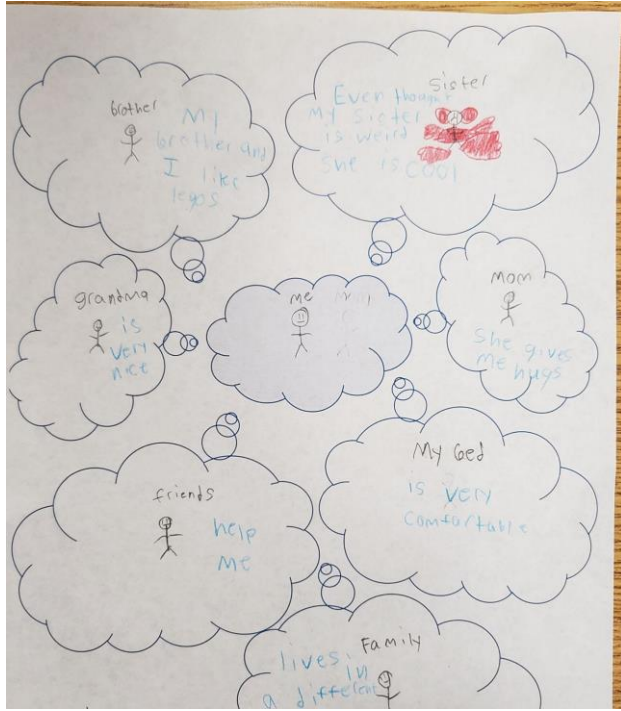 brother
My
brother and
I like
legos
sister
Even thought
My sister
is weird
She is cool
grandma
is
very
nice
me
mom
she gives
me hugs
friends
help
me
My bed
is very
comfortable
Family
lives in
a different